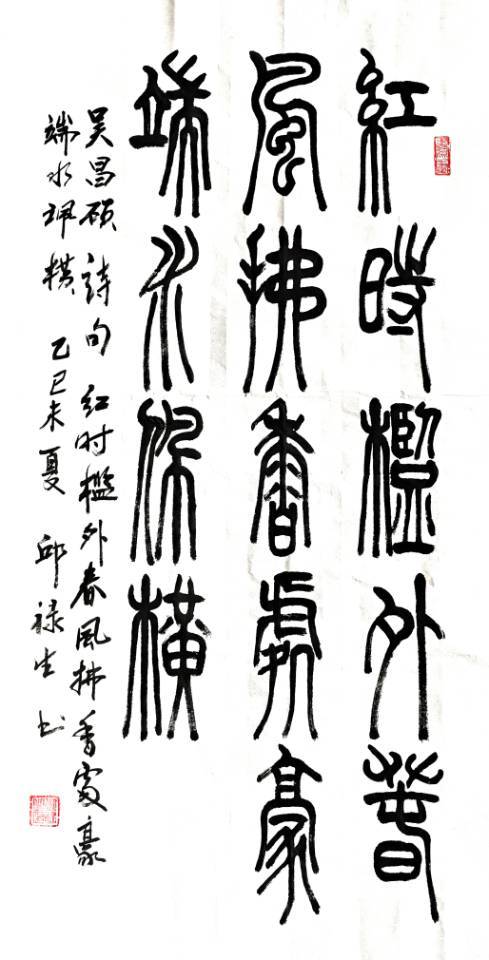 紅時檻外春
風拂香處豪
端水佩橫
吴昌硕詩句 红时槛外春風拂香處豪
端水珮横 乙巳末夏 邱禄生书